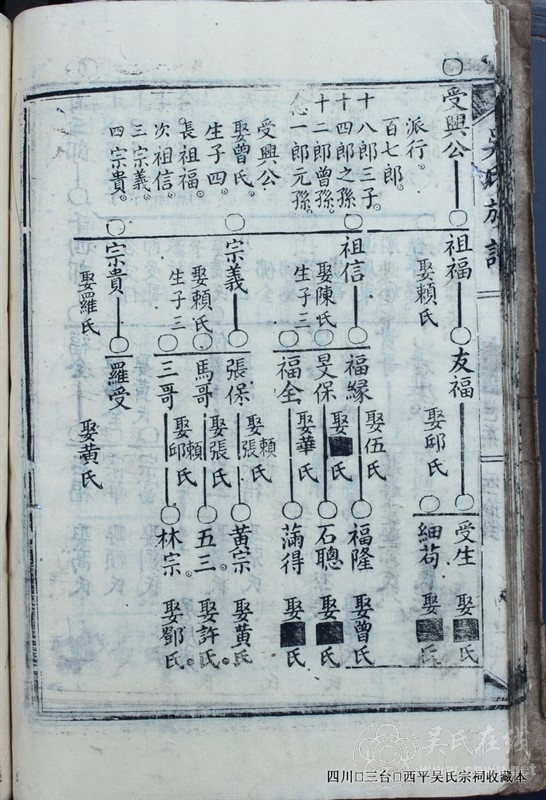 吳氏族譜
受興公
派行。
百七郎。
十八郎三子。
十四郎之孫。
十二郎曾孫。
念一郎元孫。
受興公
娶曾氏。
生子四。
長祖福。
次祖信。
三宗義。
四宗貴。
祖福
娶賴氏
友福
娶邱氏
受生
娶■氏
細苟
娶■氏
祖信
娶陳氏
生子三
福緣
娶伍氏
福隆
娶曾氏
旻保
娶■氏
石聰
娶■氏
福全
娶華氏
滿得
娶■氏
宗義
娶賴氏
生子三
張保
娶賴張氏
黃宗
娶黃氏
馬哥
娶張氏
五三。
娶許氏。
三哥
娶賴邱氏
林宗。
娶鄧氏。
宗貴
娶羅氏
羅受
娶黃氏
吴氏在线
四川□三台□西平吴氏宗祠收藏本